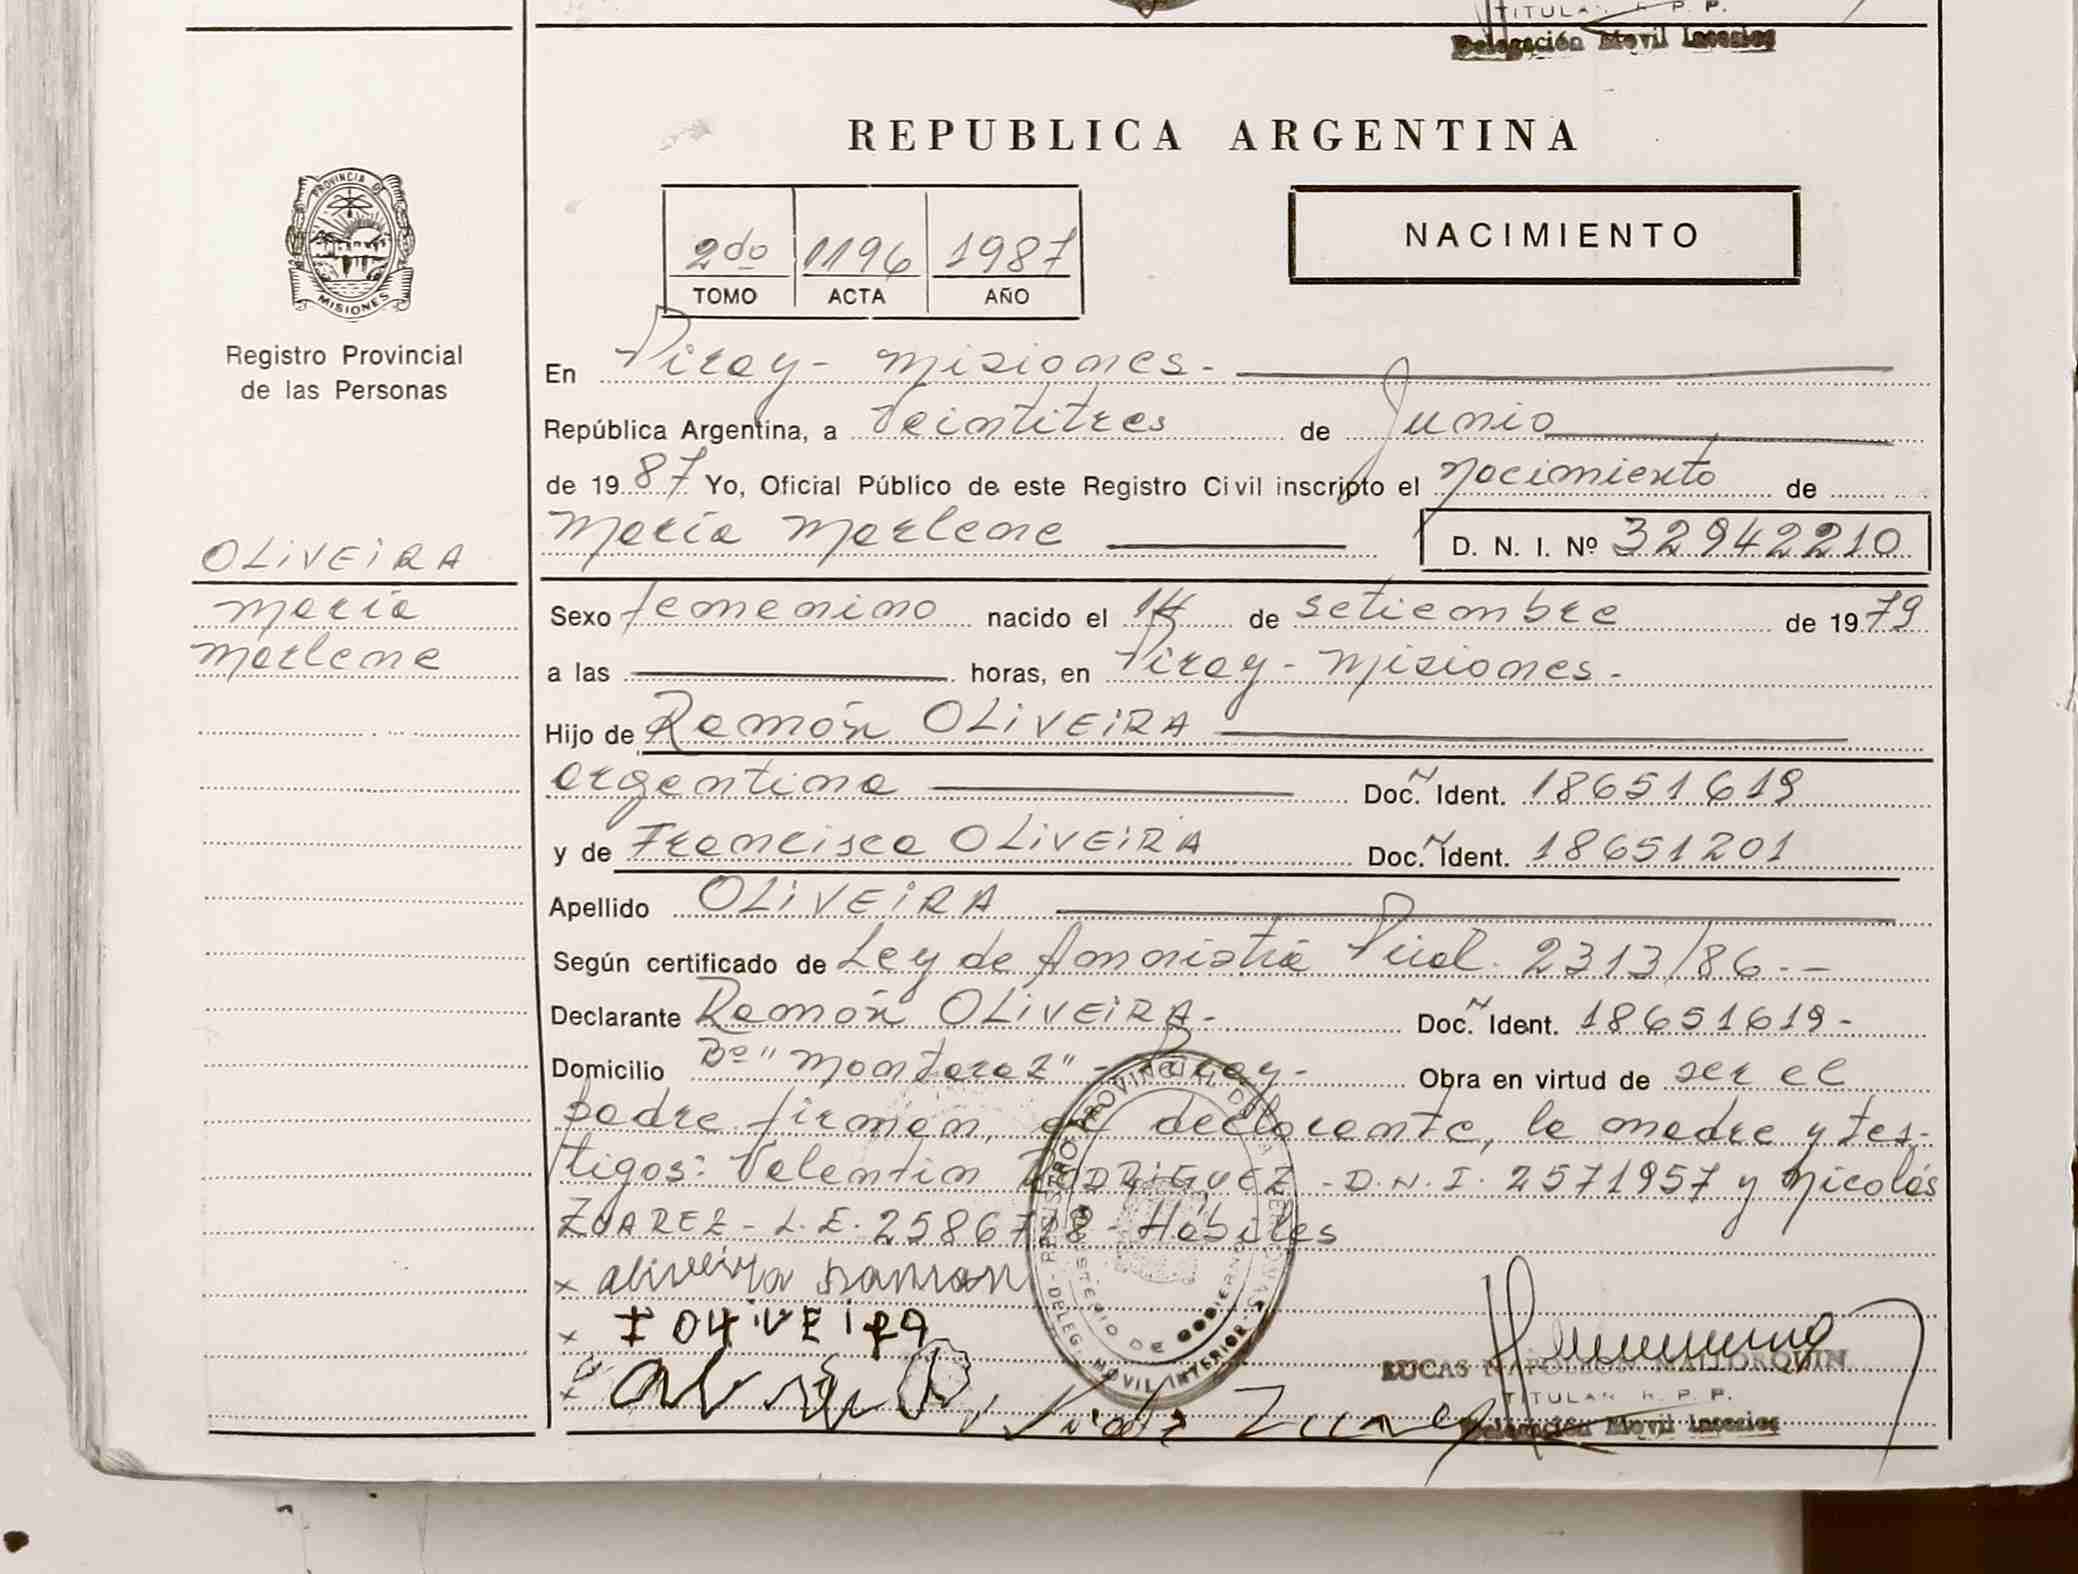 TITULAR R. P. P.
Delegación Movil Interior
REPUBLICA ARGENTINA
PROVINCIA DE
MISIONES
Registro Provincial
de las Personas
2do 1196 1987
TOMO ACTA AÑO
NACIMIENTO
En Piray - Misiones -
República Argentina, a Veintitres de Junio
de 1987 Yo, Oficial Público de este Registro Civil inscripto el Nacimiento de
María Marlene D. N. I. Nº 32942210
OLIVEIRA
María
Marlene
Sexo femenino nacido el 14 de setiembre de 1979
a las horas, en Piray - Misiones -
Hijo de Ramón OLIVEIRA
argentina Doc. Ident. 18651619
y de Francisca OLIVEIRA Doc. Ident. 18651201
Apellido OLIVEIRA
Según certificado de Ley de Amnistía Pcial. 2313/86 - -
Declarante Ramón OLIVEIRA - Doc. Ident. 18651619 -
Domicilio Bº "Montaraz" - Piray - Obra en virtud de ser el
padre. firman, el declarante, la madre y tes-
tigos: Valentín RODRIGUEZ - D.N.I. 2571957 y Nicolás
ZUAREZ - L.E. 2586718 - Hábiles
x oliveira ramon
x F OLIVEIRA
REGISTRO PROVINCIAL DE LAS PERSONAS - DELEG. MOVIL INTERIOR -
MINISTERIO DE GOBIERNO
LUCAS NAPOLEON MALLORQUIN
TITULAR R. P. P.
Delegación Movil Interior